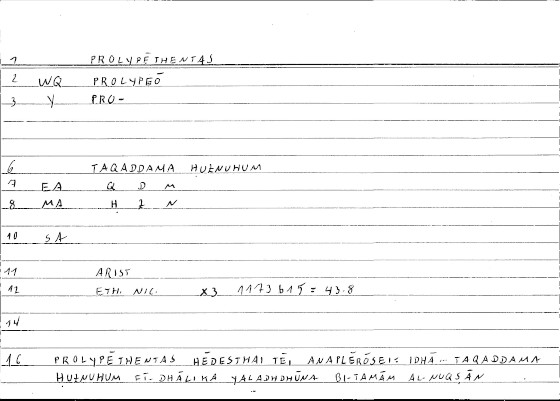 1 PROLYPĒTHENTAS
2 WQ PROLYPEŌ
3 Y PRO-
6 TAQADDAMA HUZNUHUM
7 EA Q D M
8 MA H Z N
10 SA
11 ARIST
12 ETH. NIC. X3 1173b15 = 43.8
14
16 PROLYPĒTHENTAS HĒDESTHAI TĒI ANAPLĒRŌSEI: IDHĀ... TAQADDAMA
HUZNUHUM FĪ-DHĀLIKA YALADHDHŪNA BI-TAMĀM AL-NUQṢĀN